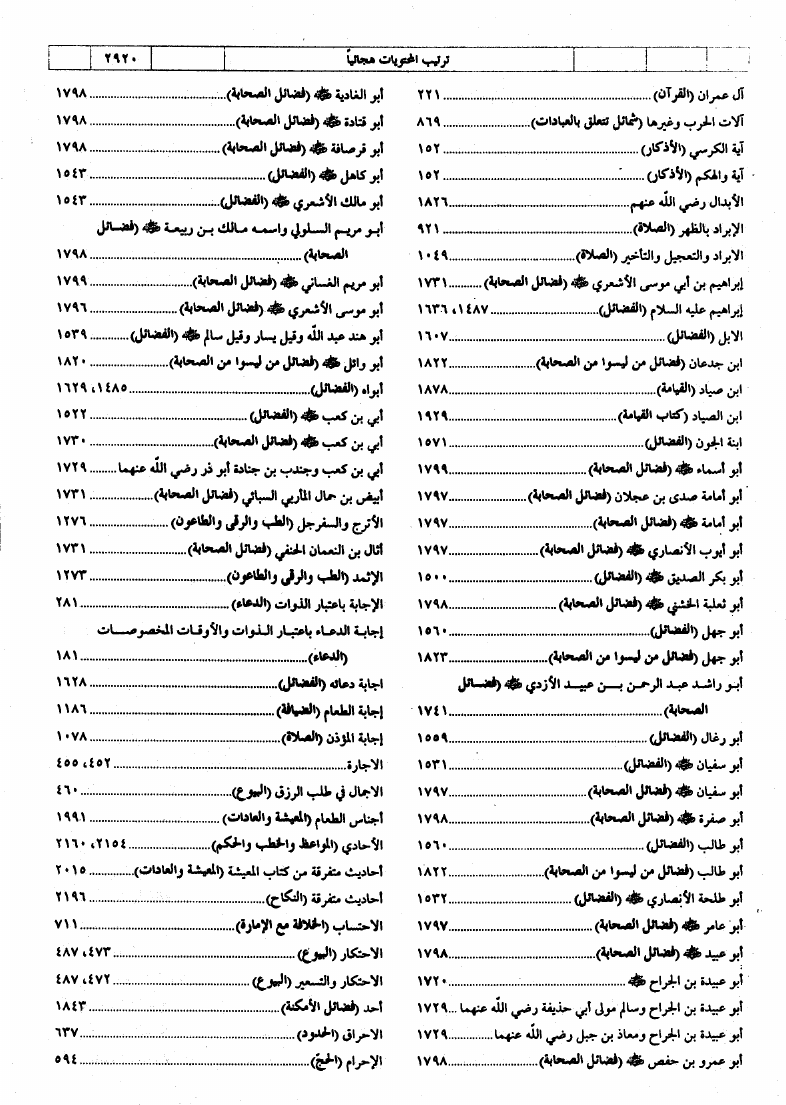 ترتيب المحتويات هجائياً
٢٩٢٠
آل عمران (القرآن) ... ٢٢١
آلات الحرب وغيرها (شمائل تتعلق بالعبادات) ... ٨٦٩
آية الكرسي (الأذكار) ... ١٥٢
آية والهكم (الأذكار) ... ١٥٢
الأبدال رضي الله عنهم ... ١٨٢٦
الإبراد بالظهر (الصلاة) ... ٩٢١
الابراد والتعجيل والتأخير (الصلاة) ... ١٠٤٩
إبراهيم بن أبي موسى الأشعري ﷺ (فضائل الصحابة) ... ١٧٣١
إبراهيم عليه السلام (الفضائل) ... ١٤٨٧، ١٦٣٦
الابل (الفضائل) ... ١٦٠٧
ابن جدعان (فضائل من ليسوا من الصحابة) ... ١٨٢٢
ابن صياد (القيامة) ... ١٨٧٨
ابن الصياد (كتاب القيامة) ... ١٩٢٩
ابنة الجون (الفضائل) ... ١٥٧١
أبو أسماء ﷺ (فضائل الصحابة) ... ١٧٩٩
أبو أمامة صدى بن عجلان (فضائل الصحابة) ... ١٧٩٧
أبو أمامة ﷺ (فضائل الصحابة) ... ١٧٩٧
أبو أيوب الأنصاري ﷺ (فضائل الصحابة) ... ١٧٩٧
أبو بكر الصديق ﷺ (الفضائل) ... ١٥٠٠
أبو ثعلبة الخشني ﷺ (فضائل الصحابة) ... ١٧٩٨
أبو جهل (الفضائل) ... ١٥٦٠
أبو جهل (فضائل من ليسوا من الصحابة) ... ١٨٢٣
أبو راشد عبد الرحمن بن عبيد الأزدي ﷺ (فضائل
الصحابة) ... ١٧٤١
أبو رغال (الفضائل) ... ١٥٥٩
أبو سفيان ﷺ (الفضائل) ... ١٥٣١
أبو سفيان ﷺ (فضائل الصحابة) ... ١٧٩٧
أبو صفرة ﷺ (فضائل الصحابة) ... ١٧٩٨
أبو طالب (الفضائل) ... ١٥٦٠
أبو طالب (فضائل من ليسوا من الصحابة) ... ١٨٢٢
أبو طلحة الأنصاري ﷺ (الفضائل) ... ١٥٣٢
أبو عامر ﷺ (فضائل الصحابة) ... ١٧٩٧
أبو عبيد ﷺ (فضائل الصحابة) ... ١٧٩٨
أبو عبيدة بن الجراح ﷺ ... ١٧٢٠
أبو عبيدة بن الجراح وسالم مولى أبي حذيفة رضي الله عنهما ... ١٧٢٩
أبو عبيدة بن الجراح ومعاذ بن جبل رضي الله عنهما ... ١٧٢٩
أبو عمرو بن حفص ﷺ (فضائل الصحابة) ... ١٧٩٨
أبو الغادية ﷺ (فضائل الصحابة) ... ١٧٩٨
أبو قتادة ﷺ (فضائل الصحابة) ... ١٧٩٨
أبو قرصافة ﷺ (فضائل الصحابة) ... ١٧٩٨
أبو كاهل ﷺ (الفضائل) ... ١٥٤٣
أبو مالك الأشعري ﷺ (الفضائل) ... ١٥٤٣
أبو مريم السلولي واسمه مالك بن ربيعة ﷺ (فضائل
الصحابة) ... ١٧٩٨
أبو مريم الغساني ﷺ (فضائل الصحابة) ... ١٧٩٩
أبو موسى الأشعري ﷺ (فضائل الصحابة) ... ١٧٩٦
أبو هند عبد الله وقيل يسار وقيل سالم ﷺ (الفضائل) ... ١٥٣٩
أبو وائل ﷺ (فضائل من ليسوا من الصحابة) ... ١٨٢٠
أبواه (الفضائل) ... ١٤٨٥، ١٦٢٩
أبي بن كعب ﷺ (الفضائل) ... ١٥٢٢
أبي بن كعب ﷺ (فضائل الصحابة) ... ١٧٣٠
أبي بن كعب وجندب بن جنادة أبو ذر رضي الله عنهما ... ١٧٢٩
أبيض بن حمال المأربي السبائي (فضائل الصحابة) ... ١٧٣١
الأترج والسفرجل (الطب والرقى والطاعون) ... ١٢٧٦
أثال بن النعمان الحنفي (فضائل الصحابة) ... ١٧٣١
الإثمد (الطب والرقى والطاعون) ... ١٢٧٣
الإجابة باعتبار الذوات (الدعاء) ... ٢٨١
إجابة الدعاء باعتبار الذوات والأوقات المخصوصات
(الدعاء) ... ١٨١
اجابة دعائه (الفضائل) ... ١٦٢٨
إجابة الطعام (الضيافة) ... ١١٨٦
إجابة المؤذن (الصلاة) ... ١٠٧٨
الاجارة ... ٤٥٢، ٤٥٥
الاجمال في طلب الرزق (البيوع) ... ٤٦٠
أجناس الطعام (المعيشة والعادات) ... ١٩٩١
الأحادي (المواعظ والخطب والحكم) ... ٢١٥٤، ٢١٦٠
أحاديث متفرقة من كتاب المعيشة (المعيشة والعادات) ... ٢٠١٥
أحاديث متفرقة (النكاح) ... ٢١٩٦
الاحتساب (الخلافة مع الإمارة) ... ٧١١
الاحتكار (البيوع) ... ٤٧٣، ٤٨٧
الاحتكار والتسعير (البيوع) ... ٤٧٢، ٤٨٧
أحد (فضائل الأمكنة) ... ١٨٤٣
الاحراق (الحدود) ... ٦٣٧
الإحرام (الحج) ... ٥٩٤